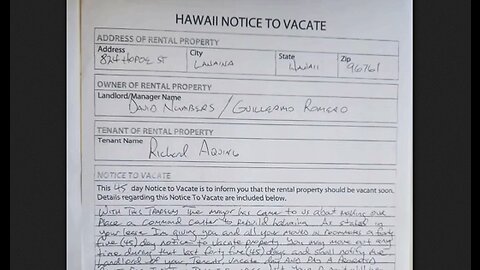 HAWAII NOTICE TO VACATE
ADDRESS OF RENTAL PROPERTY
Address City State Zip
824 HOPOE ST LAHAINA HAWAII 96761
OWNER OF RENTAL PROPERTY
Landlord/Manager Name
DAVID NUMBERS / GUILLERMO ROMERO
TENANT OF RENTAL PROPERTY
Tenant Name
Richard AQUING
NOTICE TO VACATE
This 45 day Notice to Vacate is to inform you that the rental property should be vacant soon.
Details regarding this Notice To Vacate are included below.
WITH THE TRAGEDY The mayor has came to us about making our
Place a command center to rebuild Lahaina. As stated in
your lease I'm giving you and all your roommates a forty
five (45) day notice to vacate property. You may move out any
time during that last forty five (45) days and